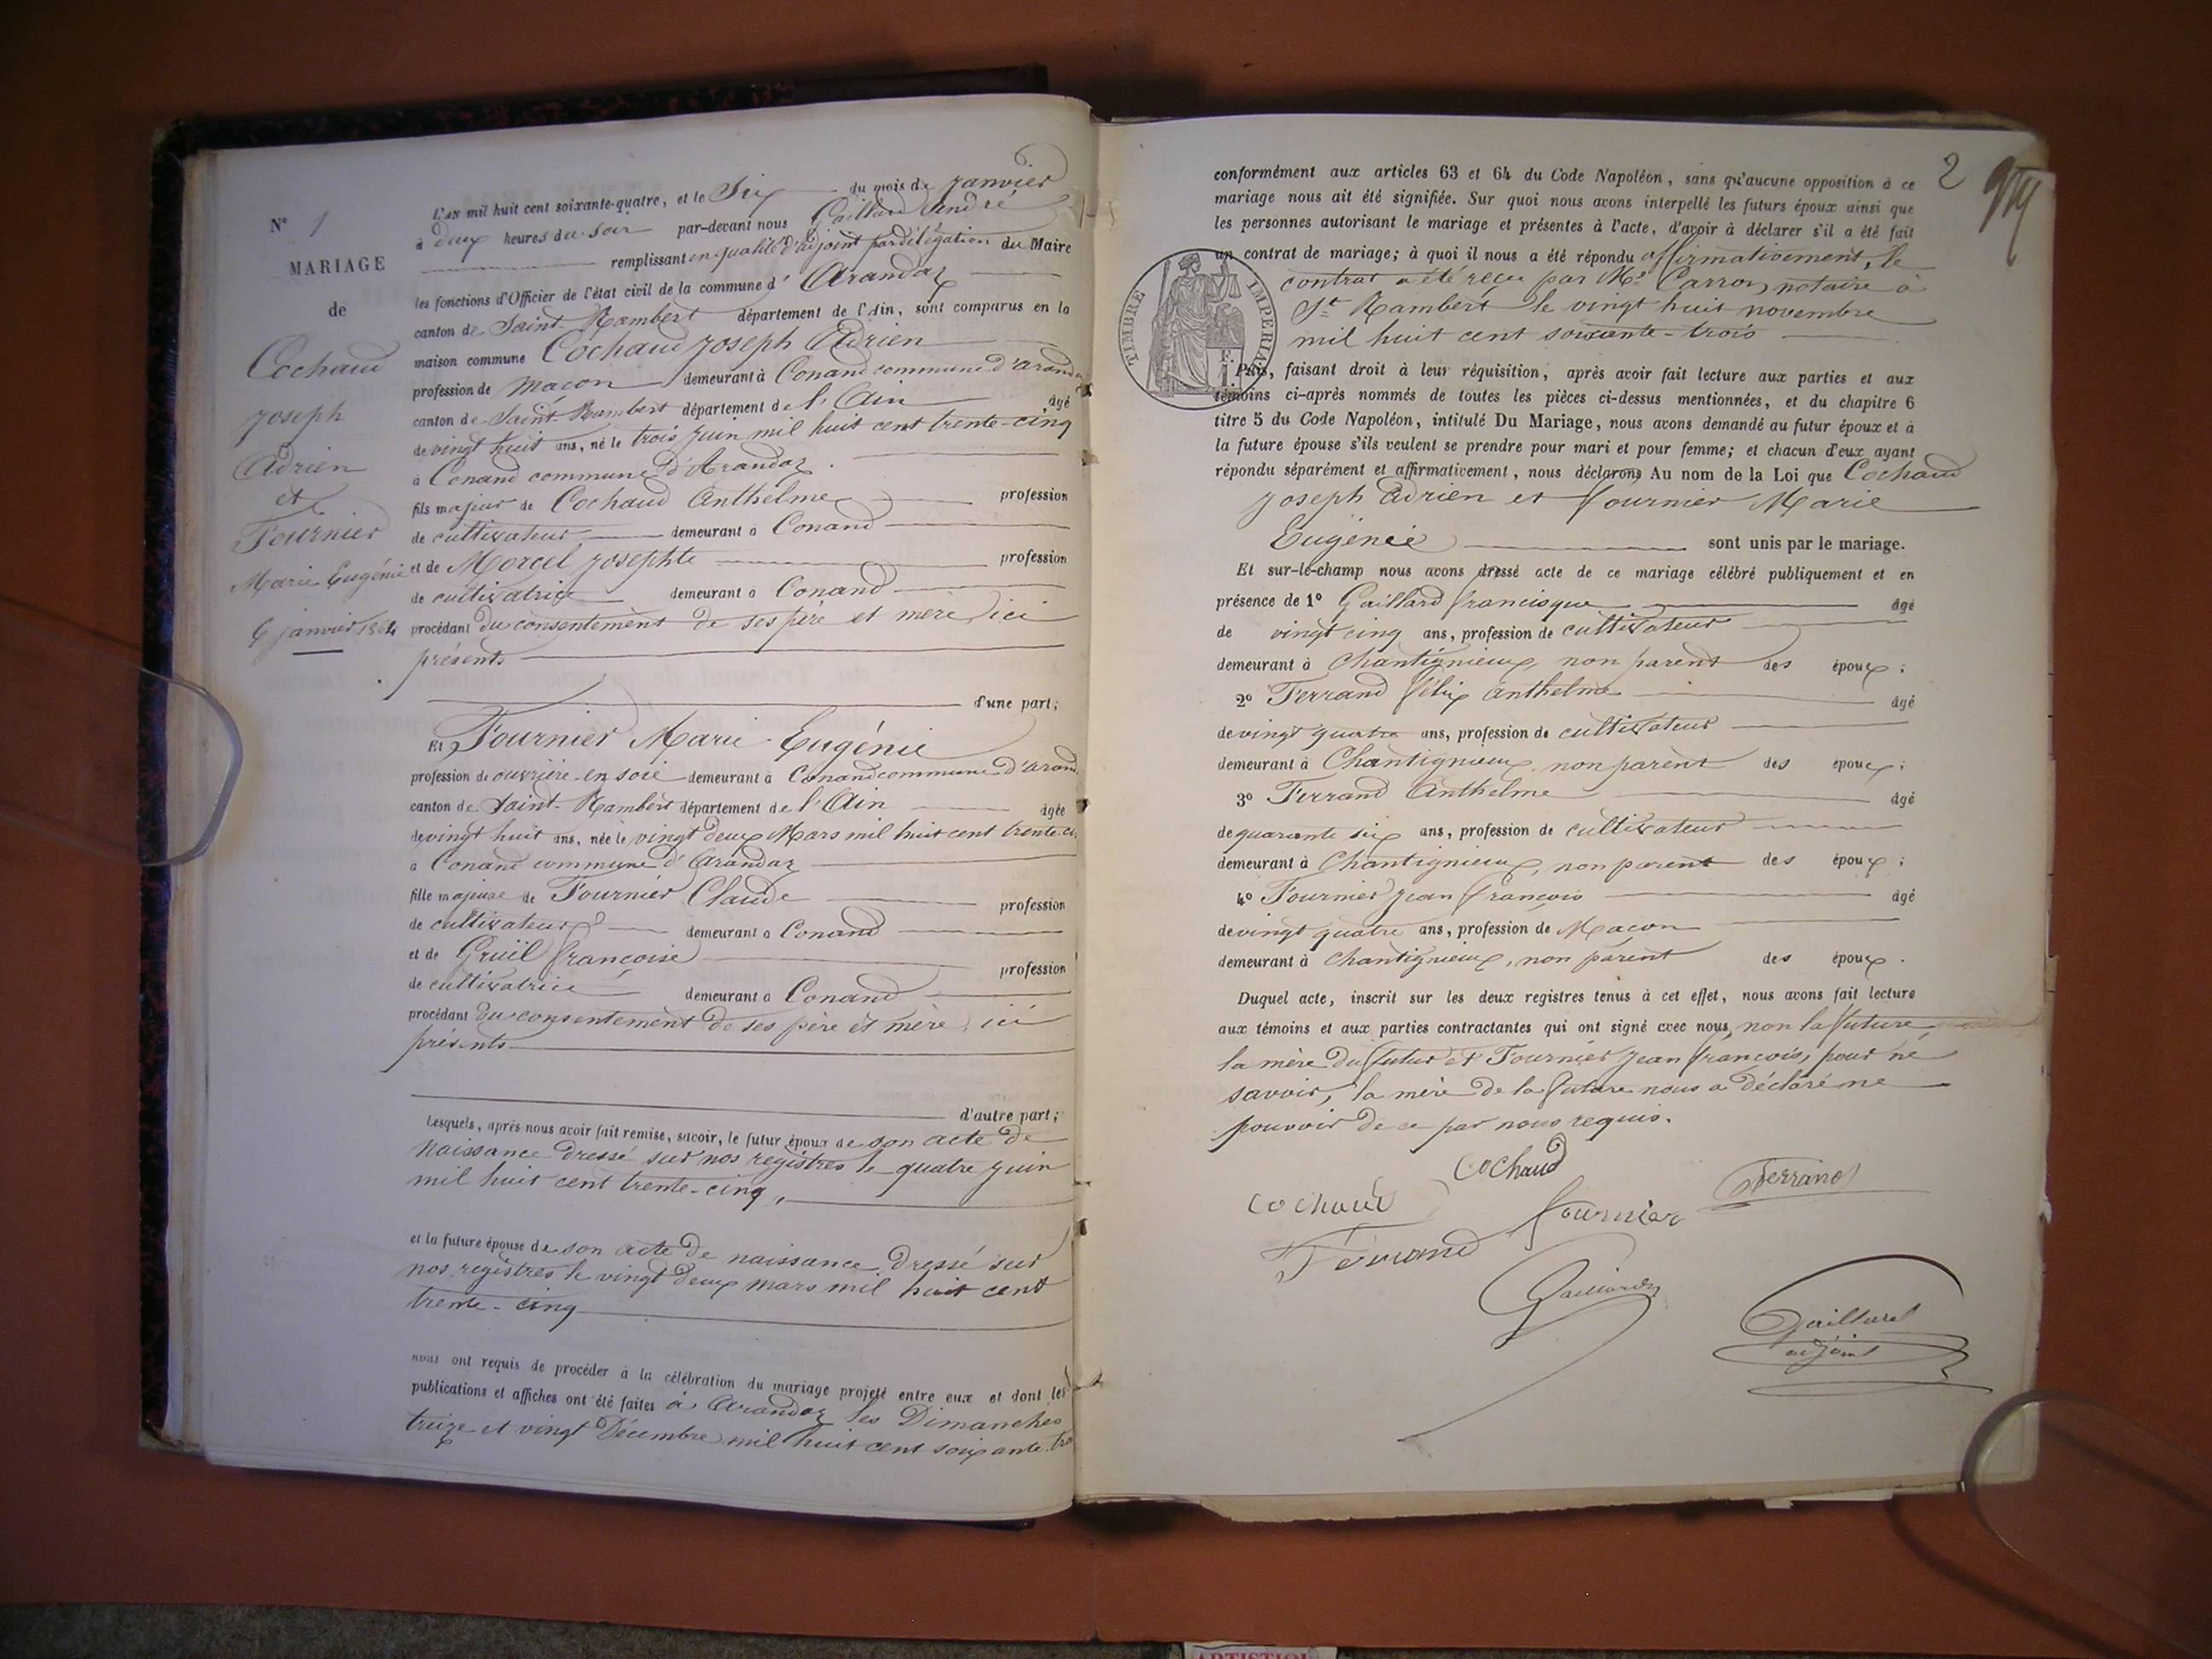 N° 1
MARIAGE
de
Cochaud
Joseph
Adrien
et
Fournier
Marie Eugénie
6 janvier 1864
L'an mil huit cent soixante-quatre, et le Six du mois de Janvier
à deux heures du soir par-devant nous Gaillard André
remplissant en qualité d'adjoint par délégation du Maire
les fonctions d'Officier de l'état civil de la commune d'Arandaz
canton de Saint-Rambert département de l'Ain, sont comparus en la
maison commune Cochaud Joseph Adrien
profession de maçon demeurant à Conand commune d'Arandaz
canton de Saint-Rambert département de l'Ain âgé
de vingt huit ans, né le trois juin mil huit cent trente-cinq
à Conand commune d'Arandaz.
fils majeur de Cochaud Anthelme profession
de cultivateur demeurant à Conand
et de Morcel Josephte profession
de cultivatrice demeurant à Conand
procédant du consentement de ses père et mère, ici
présents
d'une part;
Et Fournier Marie Eugénie
profession de ouvrière en soie demeurant à Conand commune d'Arand
canton de Saint-Rambert département de l'Ain âgée
de vingt huit ans, née le vingt deux Mars mil huit cent trente-ci
à Conand commune d'Arandaz
fille majeure de Fournier Claude profession
de cultivateur demeurant à Conand
et de Gruël françoise profession
de cultivatrice demeurant à Conand
procédant du consentement de ses père et mère, ici
présents
d'autre part;
Lesquels, après nous avoir fait remise, savoir, le futur époux de son acte de
naissance dressé sur nos registres le quatre juin
mil huit cent trente-cinq,
et la future épouse de son acte de naissance dressé sur
nos registres le vingt deux mars mil huit cent
trente-cinq
nous ont requis de procéder à la célébration du mariage projeté entre eux et dont les
publications et affiches ont été faites à Arandaz les Dimanches
treize et vingt Décembre mil huit cent soixante-tro
2
conformément aux articles 63 et 64 du Code Napoléon, sans qu'aucune opposition à ce
mariage nous ait été signifiée. Sur quoi nous avons interpellé les futurs époux ainsi que
les personnes autorisant le mariage et présentes à l'acte, d'avoir à déclarer s'il a été fait
un contrat de mariage; à quoi il nous a été répondu affirmativement, le
contrat a été reçu par Me Carron, notaire à
St Rambert le vingt huit novembre
mil huit cent soixante-trois
TIMBRE IMPERIAL
F.
1.
Puis, faisant droit à leur réquisition, après avoir fait lecture aux parties et aux
témoins ci-après nommés de toutes les pièces ci-dessus mentionnées, et du chapitre 6
titre 5 du Code Napoléon, intitulé Du Mariage, nous avons demandé au futur époux et à
la future épouse s'ils veulent se prendre pour mari et pour femme; et chacun d'eux ayant
répondu séparément et affirmativement, nous déclarons Au nom de la Loi que Cochaud
Joseph Adrien et fournier Marie
Eugénie sont unis par le mariage.
Et sur-le-champ nous avons dressé acte de ce mariage célébré publiquement et en
présence de 1° Gaillard francisque âgé
de vingt cinq ans, profession de cultivateur
demeurant à Chantignieux, non parent des époux;
2° Ferrand félix anthelme âgé
de vingt quatre ans, profession de cultivateur
demeurant à Chantignieux, non parent des époux;
3° Ferrand Anthelme âgé
de quarante six ans, profession de cultivateur
demeurant à Chantignieux, non parent des époux;
4° Fournier Jean françois âgé
de vingt quatre ans, profession de Maçon
demeurant à Chantignieux, non parent des époux.
Duquel acte, inscrit sur les deux registres tenus à cet effet, nous avons fait lecture
aux témoins et aux parties contractantes qui ont signé avec nous, non la future,
la mère du futur et Fournier Jean françois, pour ne
savoir, la mère de la future nous a déclaré ne
pouvoir de ce par nous requis.
Cochaud
Cochaud
Ferrand
fournier
Ferrand
Gaillard
Gaillard
adjoint